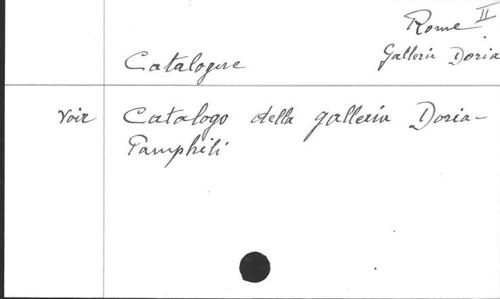 Rome II
Galleria Doria
Catalogue
Voir Catalogo della galleria Doria-
Pamphili